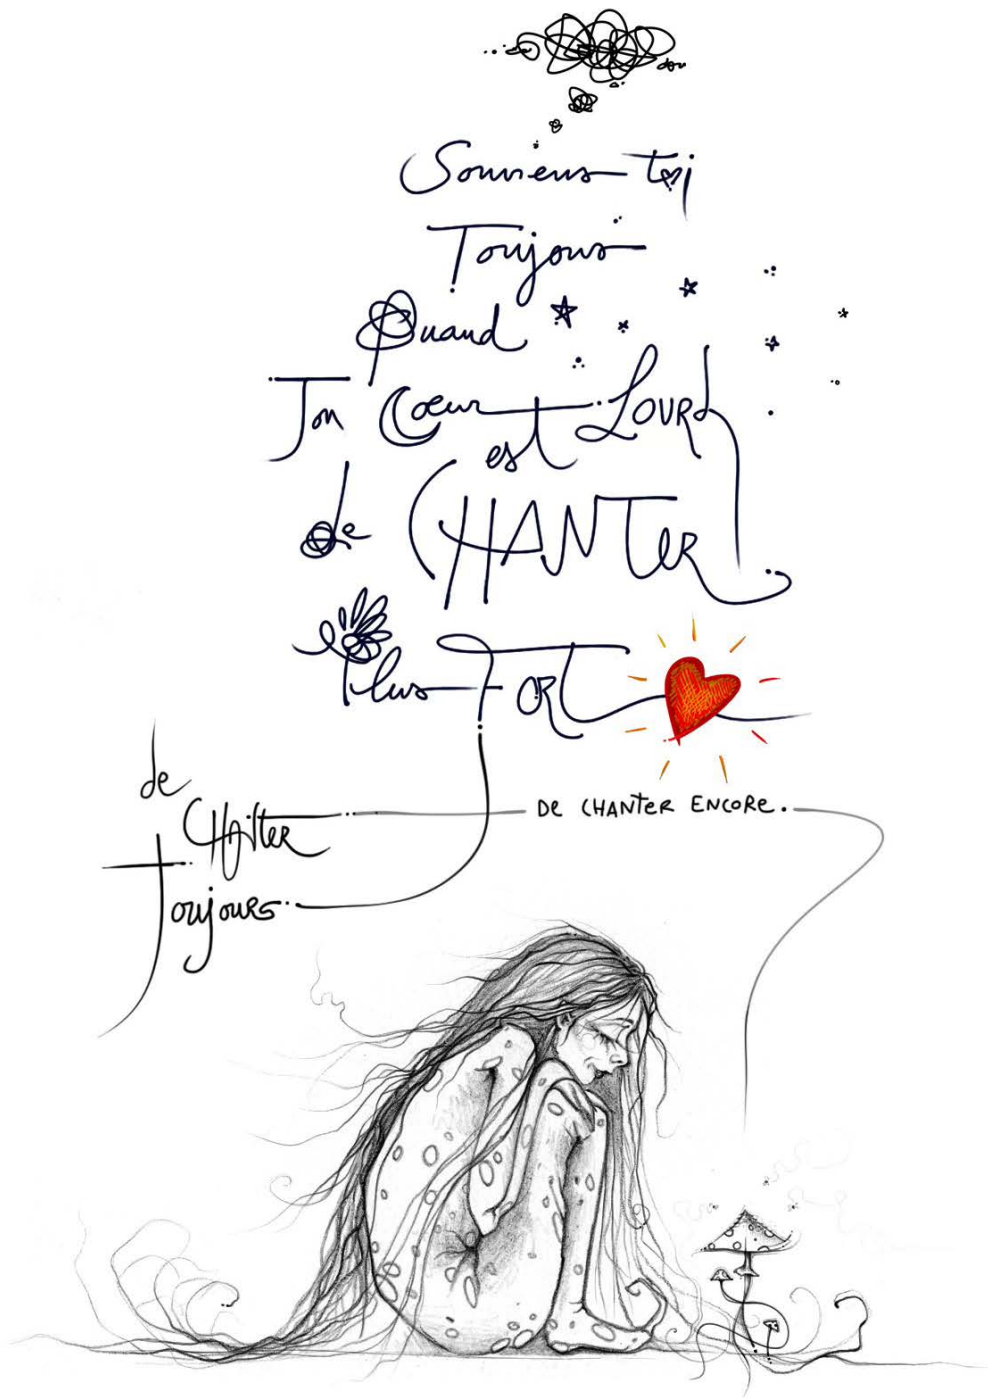 Souviens toi
Toujours
Quand
Ton Coeur est Lourd
de CHANTER
Plus FORT
de
CHANTER
Toujours
DE CHANTER ENCORE.